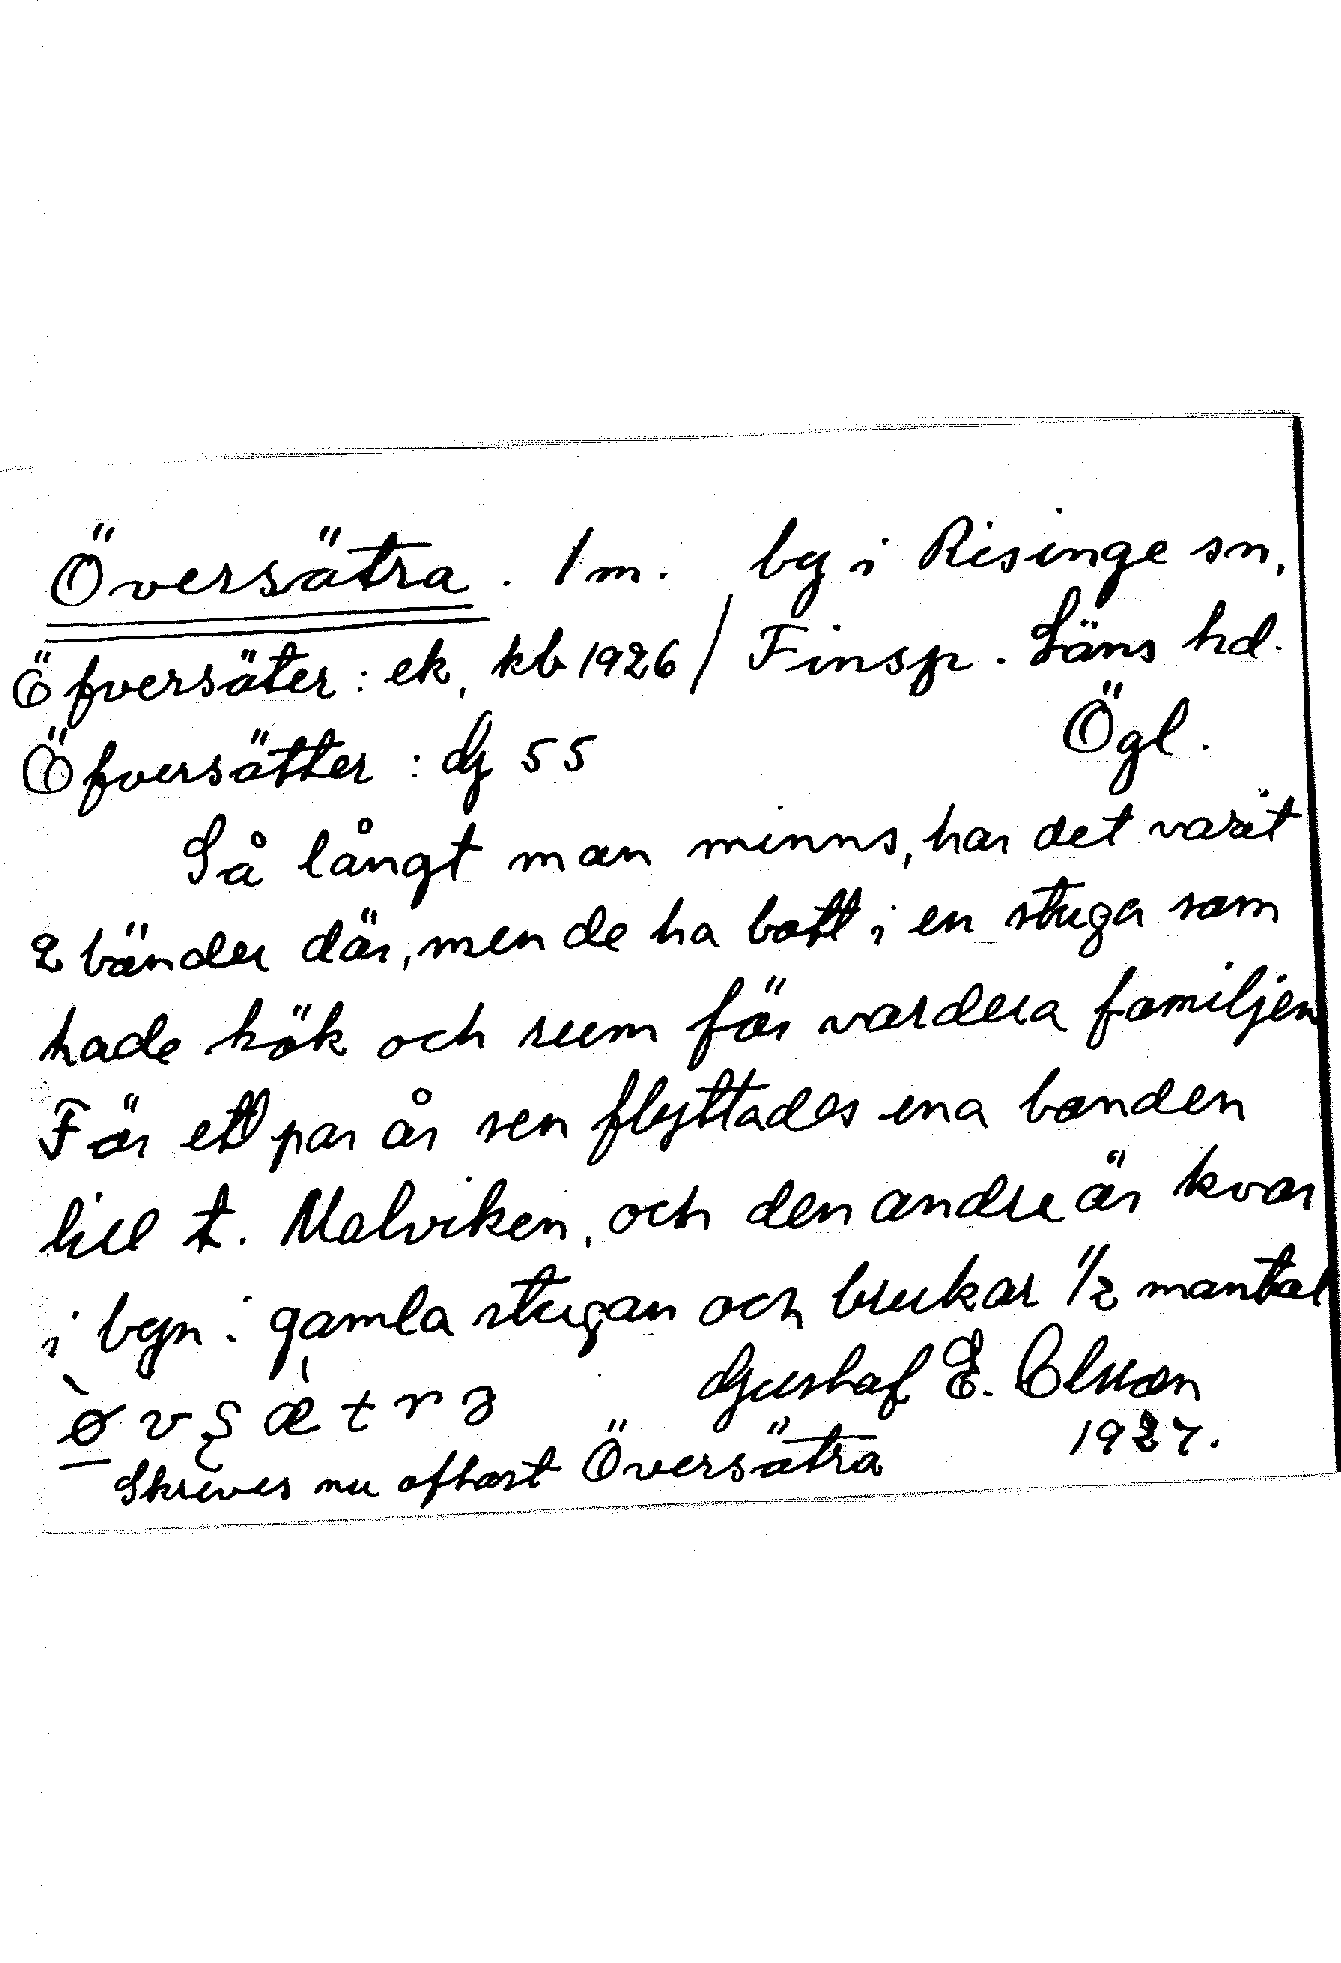 Översätra. 1 m. by i Risinge sn,
Öfversäter: ek, kb 1926 / Finsp. Läns hd.
Öfversätter: dj 55 Ögl.
Så långt man minns, har det varit
2 bönder där, men de ha bott i en stuga som
hade kök och rum för vardera familjen
För ett par år sen flyttades ena bonden
till t. Malviken, och den andre är kvar
i byn i gamla stugan och brukar 1/2 mantal
Gustaf E. Olsson
1927.
Skrives nu oftast Översätra